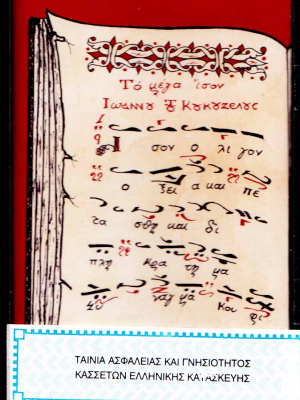 Τὸ μέγα ἴσον
Ἰωάννου τοῦ Κουκουζέλους
Ἴ σον ο λι γον
ο ξεῖ α και πε
τα σθη και δι
πλῆ κρα τη μα
ναγ μα Κου φι
ΤΑΙΝΙΑ ΑΣΦΑΛΕΙΑΣ ΚΑΙ ΓΝΗΣΙΟΤΗΤΟΣ
ΚΑΣΣΕΤΩΝ ΕΛΛΗΝΙΚΗΣ ΚΑΤΑΣΚΕΥΗΣ